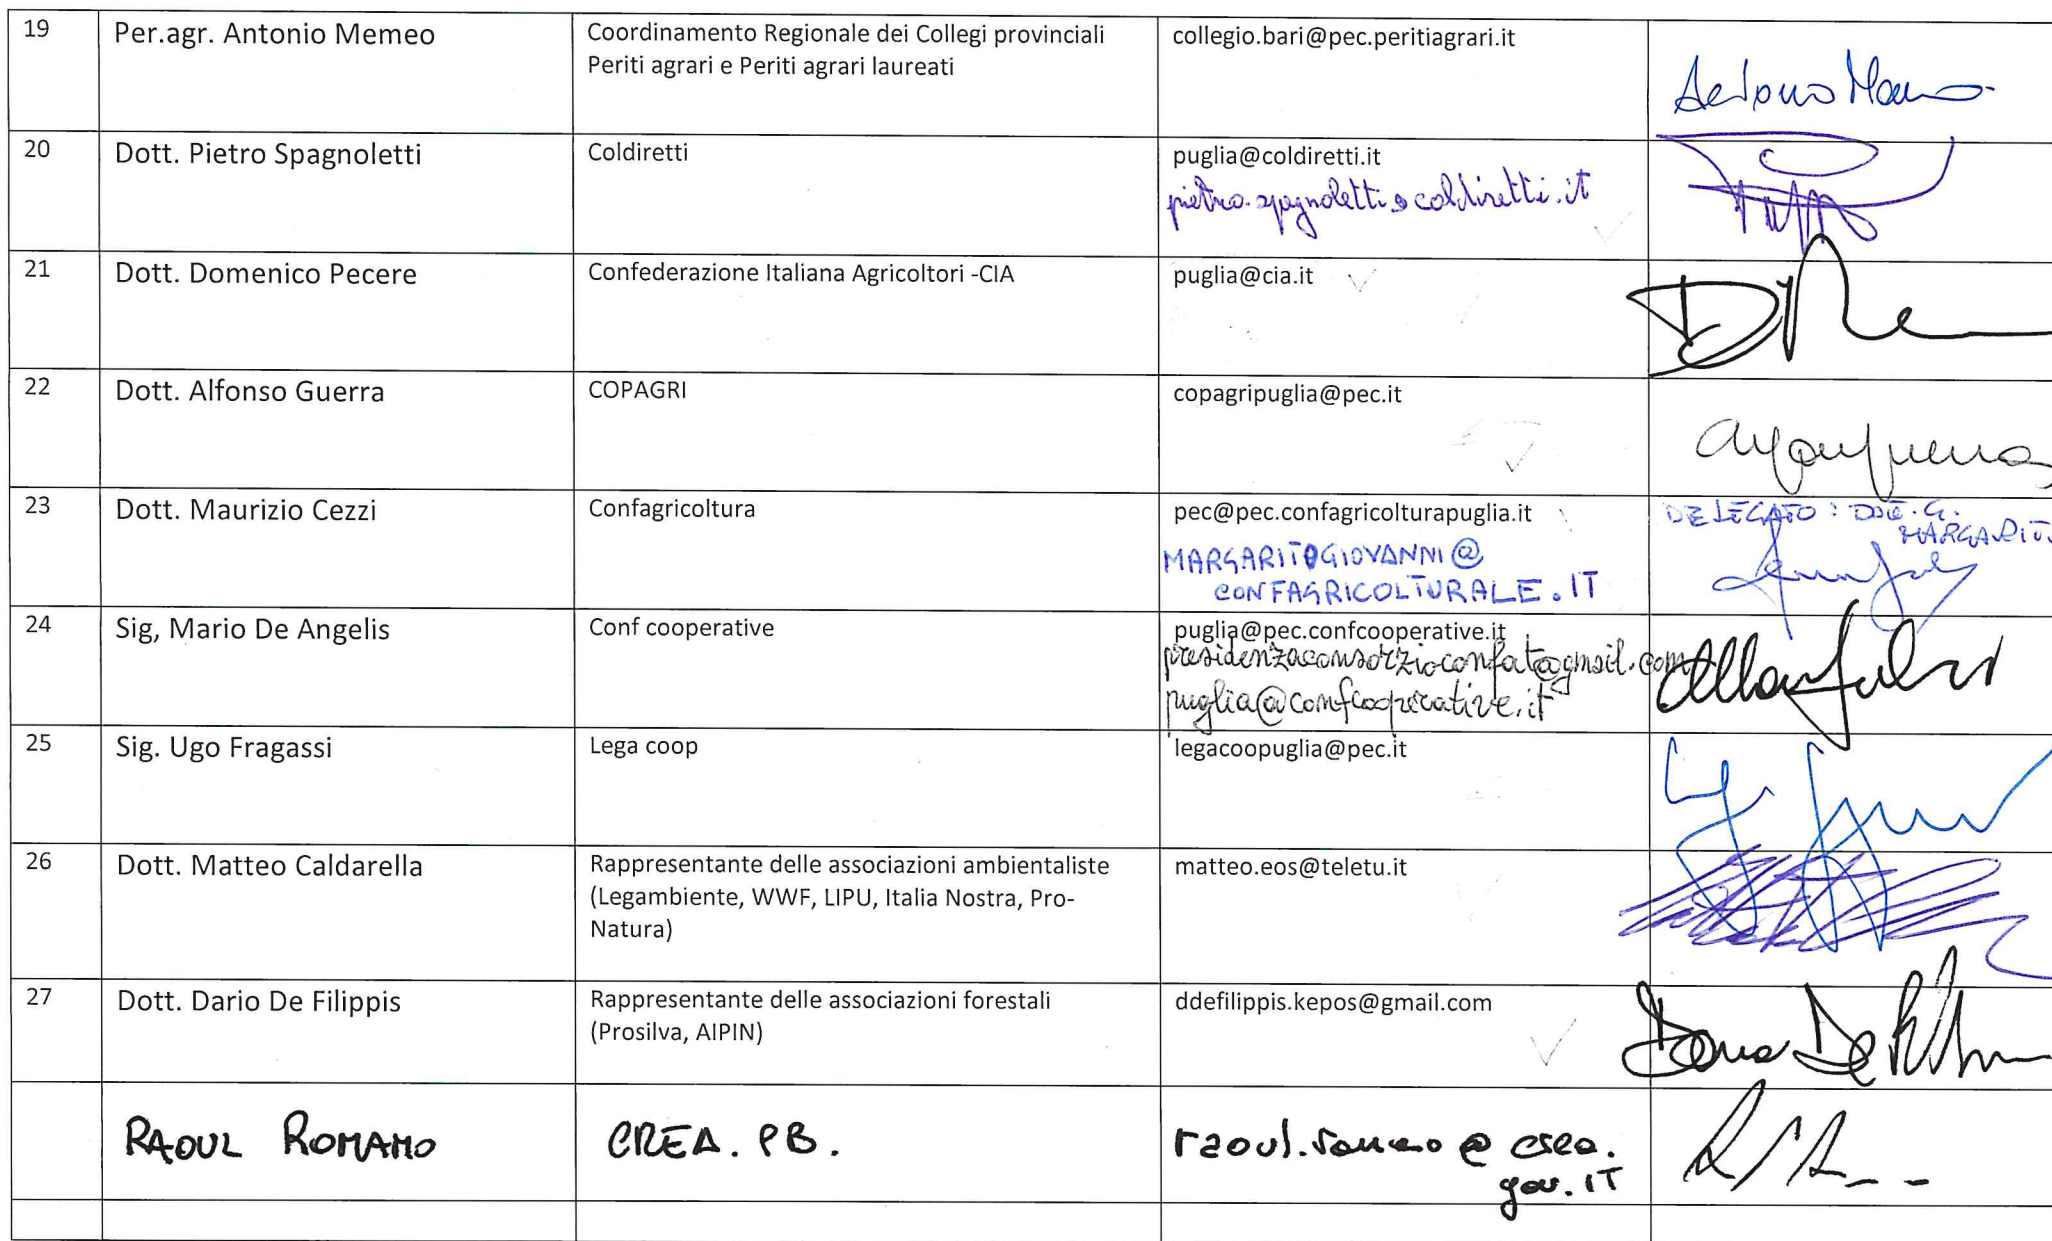 19
Per.agr. Antonio Memeo
Coordinamento Regionale dei Collegi provinciali
Periti agrari e Periti agrari laureati
collegio.bari@pec.peritiagrari.it
20
Dott. Pietro Spagnoletti
Coldiretti
puglia@coldiretti.it
pietro.spagnoletti@coldiretti.it
21
Dott. Domenico Pecere
Confederazione Italiana Agricoltori -CIA
puglia@cia.it
22
Dott. Alfonso Guerra
COPAGRI
copagripuglia@pec.it
23
Dott. Maurizio Cezzi
Confagricoltura
pec@pec.confagricolturapuglia.it
MARGARITOGIOVANNI@
CONFAGRICOLTURALE.IT
DELEGATO: DOTT. G.
24
Sig, Mario De Angelis
Conf cooperative
puglia@pec.confcooperative.it
presidenzaconsorzioconfat@gmail.com
puglia@confcooperative.it
25
Sig. Ugo Fragassi
Lega coop
legacoopuglia@pec.it
26
Dott. Matteo Caldarella
Rappresentante delle associazioni ambientaliste
(Legambiente, WWF, LIPU, Italia Nostra, Pro-
Natura)
matteo.eos@teletu.it
27
Dott. Dario De Filippis
Rappresentante delle associazioni forestali
(Prosilva, AIPIN)
ddefilippis.kepos@gmail.com
RAOUL ROMANO
CREA. PB.
raoul.romano@crea.
gov.IT